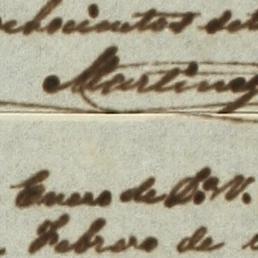 ochocientos set
Martinez
Enero de D. V.
Febrero de